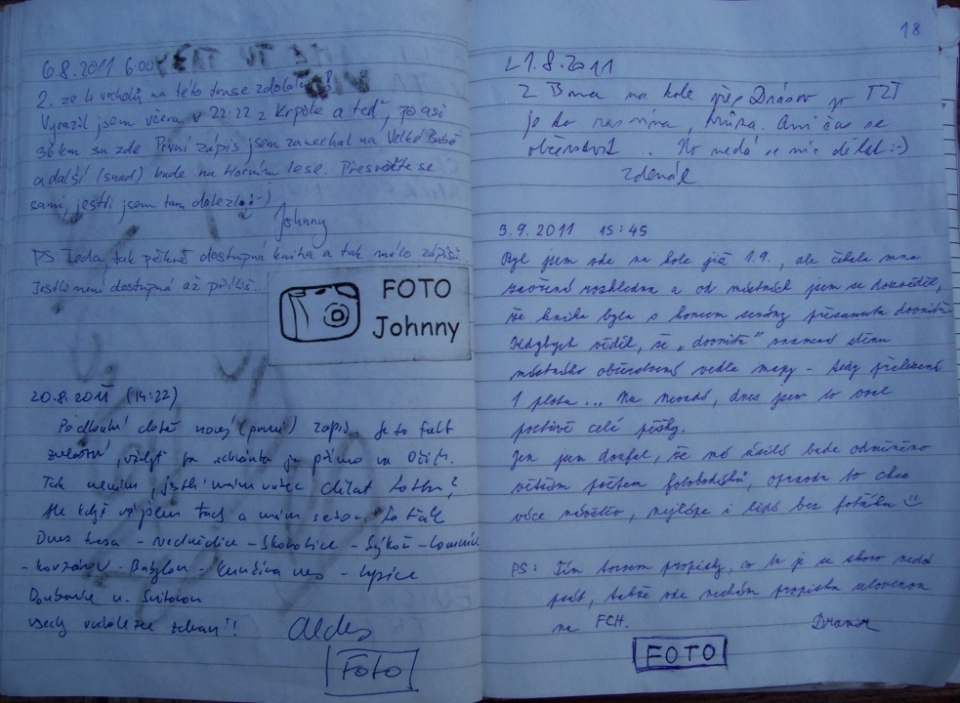 6.8.2011 6:00
2. ze 4 vrcholů na této trase zdolaný!
Vyrazil jsem včera v 22:22 z Krpole a teď, po asi
36 km su zde. První zápis jsem zanechal na Velké Babě
a další (snad) bude na Horním lese. Přesvěčte se
sami, jestli jsem tam dolezl :-)
Johnny
PS Teda, tak pěkně dostupná kniha a tak málo zápisů...
Jestli není dostupná až příliš...
FOTO
Johnny
20.8.2011 (14:22)
Po dlouhé době nový (první) zápis. Je to fakt
zvláštní, vždyť je schránka je přímo na očích.
Tak nevím, jestli mám vůbec
Ale když už jsem tady a mám
Dnes trasa - Nedvědice - Skorotice - Sýkoř - Lomnice
- Babylon - Kunčina ves - Lysice
Doubravice n. Svitavou
všechny zdraví!!
Aldes
FOTO
18
21.8.2011
Z Brna na kole přes Drásov je TZT
je to rasovina, hrůza. Ani čas se
občerstvit. No nedá se nic dělat :-)
Zdeněk
3.9.2011 15:45
Byl jsem zde na kole již 1.9., ale čekala mne
zavřená rozhledna a od místních jsem se dozvěděl,
že kniha byla s koncem sezóny přesunuta dovnitř.
Kdybych věděl, že "dovnitř" znamená stěnu
místního občerstvení vedle mapy - tedy přelezení
1 plotu... No nevadí, dnes jsem to vzal
poctivě celé pěšky.
Jen jsem doufal, že mé úsilí bude odměněno
větším počtem fotobodíků, opravdu to chce
více návštěv, nejlépe i lidí bez foťáku
PS: Tím torzem propisky, co tu je se skoro nedá
psát, takže zde nechám propisku ulovenou
na FCH.
FOTO